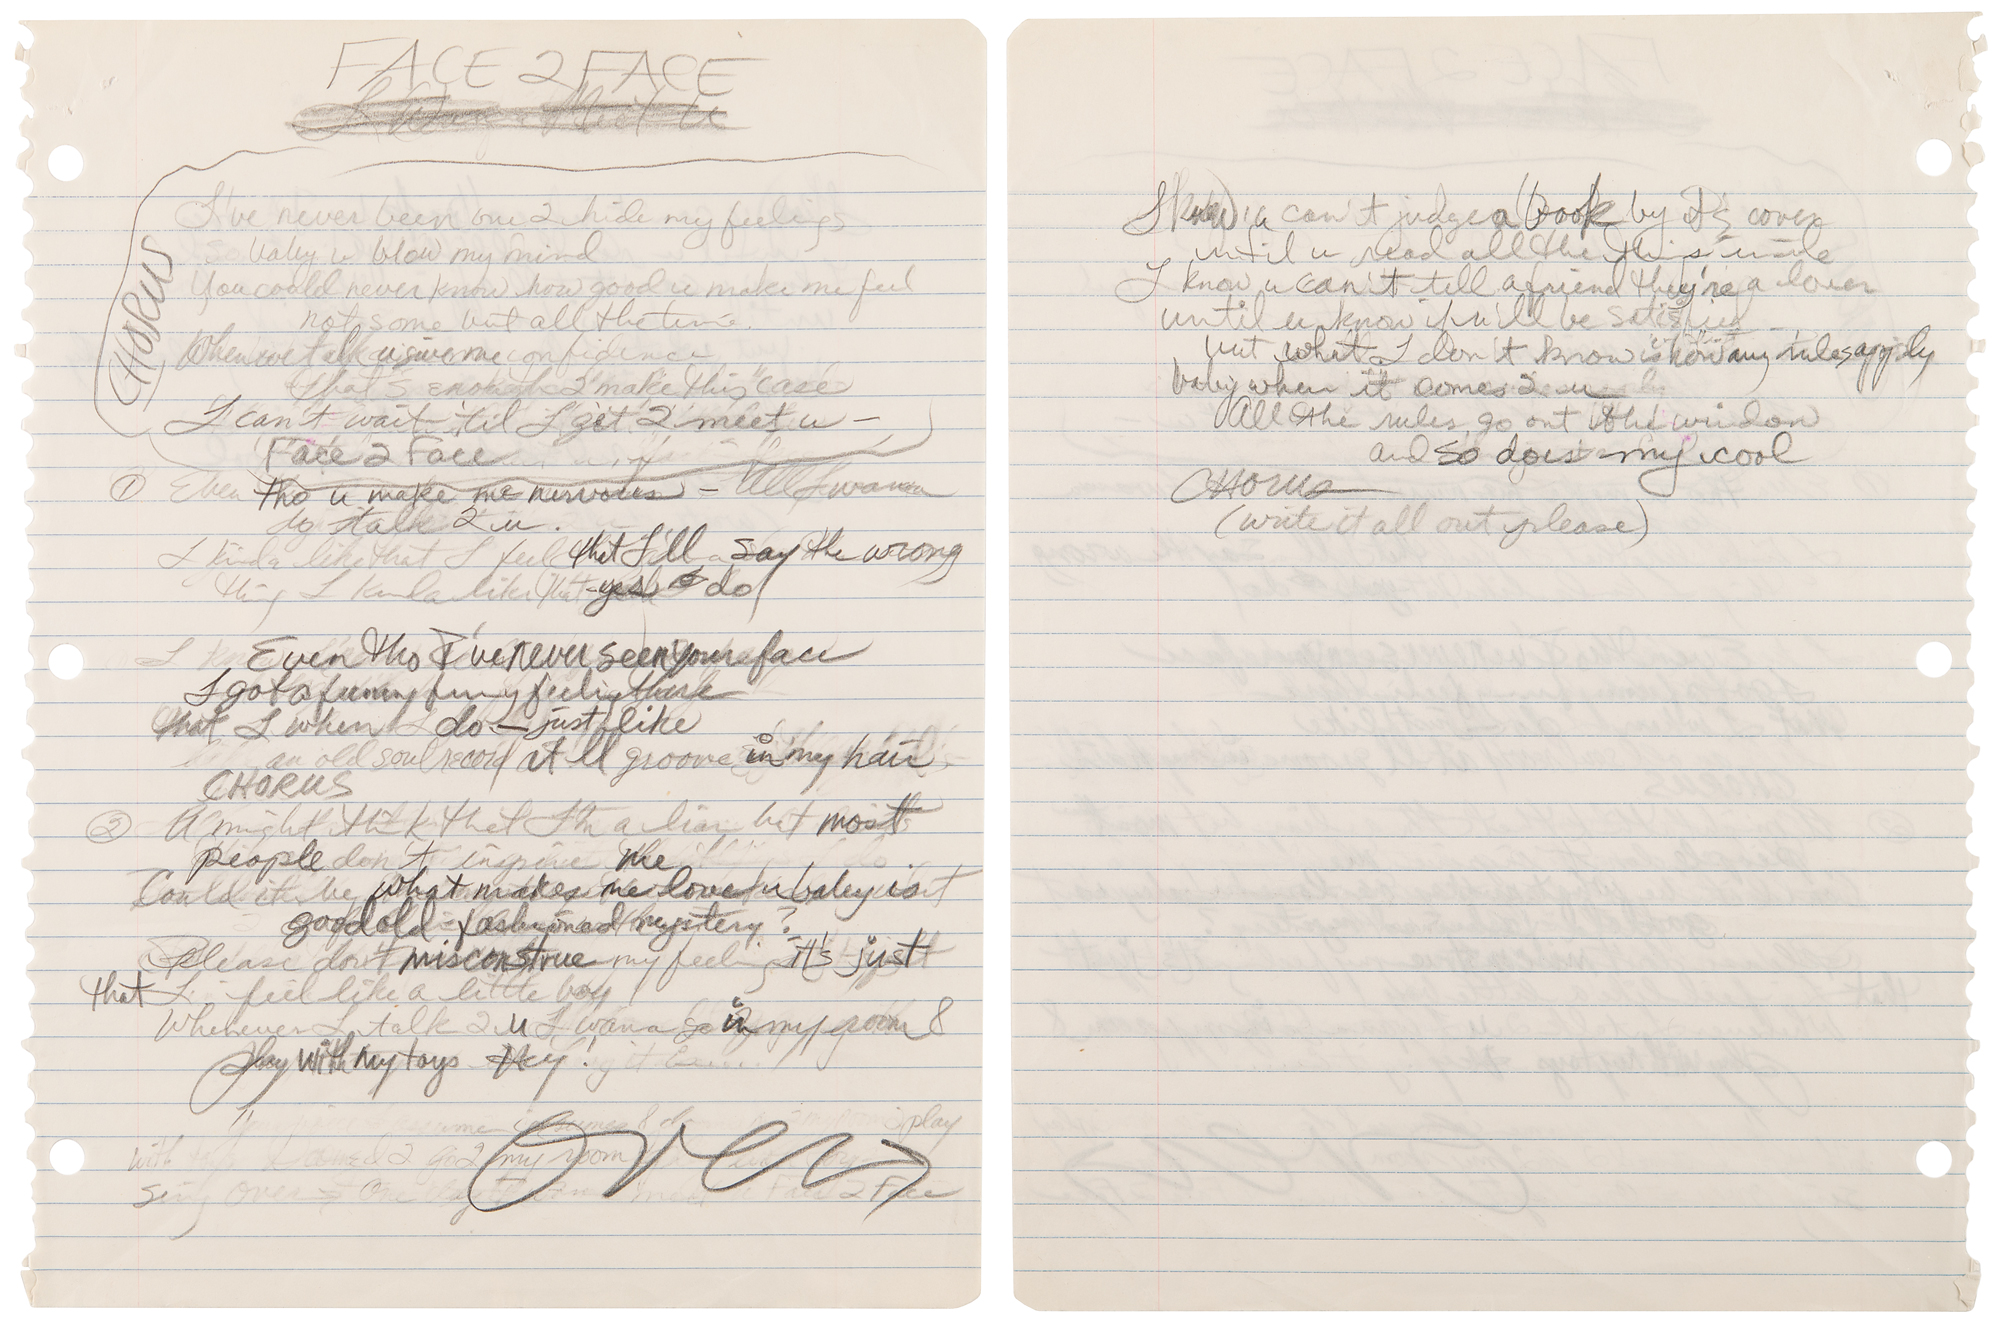 FACE 2 FACE
I Wanna Meet U
CHORUS
I've never been one 2 hide my feelings
baby u blow my mind
You could never know how good u make me feel
not some but all the time.
Whenever we talk u give me confidence
that's enough 2 make this case
I can't wait 'til I get 2 meet u –
Face 2 Face
① Even tho u make me nervous – All I wanna
do is talk 2 u.
I kinda like that I feel that I'll say the wrong
thing I kinda like that - yes I do
Even tho I've never seen your face
I got a funny funny feeling there
that I when I do – just like
an old soul record it'll groove in my hair
CHORUS
② U might think that I'm a liar but most
people don't inspire me
Could it be what makes me love u baby is
good old-fashioned mystery?
Please don't misconstrue my feelings it's just
that I feel like a little boy
Whenever I talk 2 U I wana go in my room &
play with my toys Hey!
play
with 2 go 2 my room
sing over Face 2 Face
OVER →
I know u can't judge a book by it's cover
until u read all the this inside
I know u can't tell a friend they're a lover
until u know if u'll be satisfied
but what I don't know is how any rules apply
baby when it comes 2 u
All the rules go out the window
and so does my cool
CHORUS
(write it all out please)